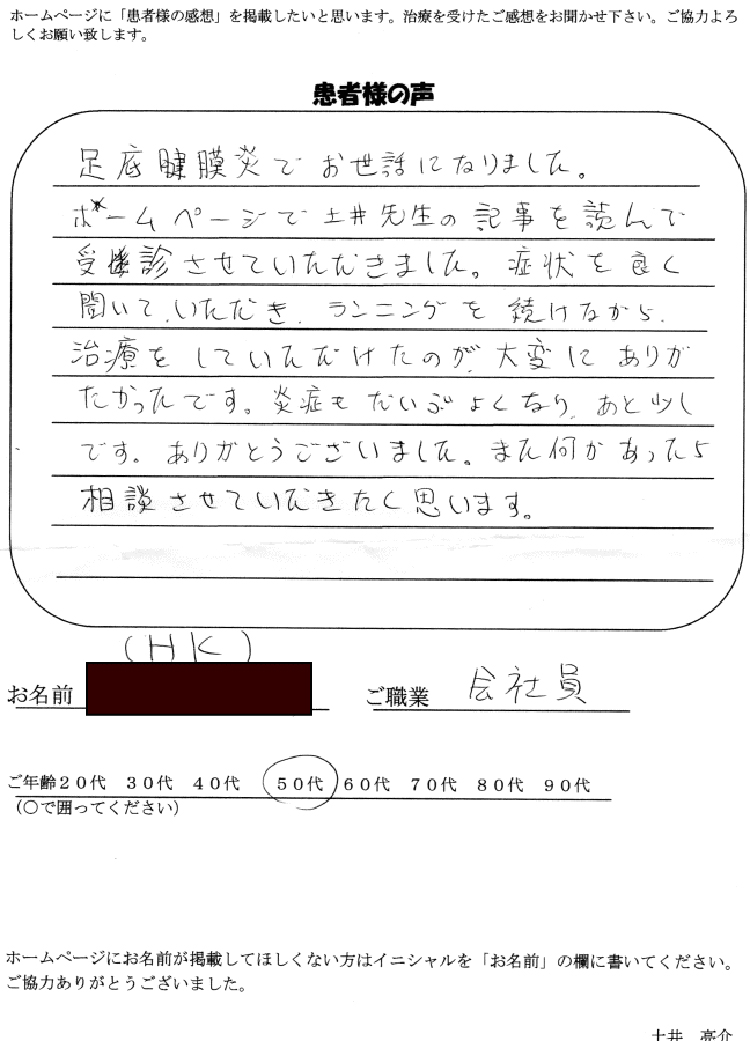 ホームページに「患者様の感想」を掲載したいと思います。治療を受けたご感想をお聞かせ下さい。ご協力よろ
しくお願い致します。
患者様の声
足底腱膜炎でお世話になりました。
ホームページで土井先生の記事を読んで
受診させていただきました。症状を良く
聞いて、いただき、ランニングを続けながら、
治療をしていただけたのが、大変にありが
たかったです。炎症もだいぶよくなり、あと少し
です。ありがとうございました。また何かあったら
相談させていだきたく思います。
(HK)
お名前 ご職業 会社員
ご年齢20代 30代 40代 50代 60代 70代 80代 90代
(○で囲ってください)
ホームページにお名前が掲載してほしくない方はイニシャルを「お名前」の欄に書いてください。
ご協力ありがとうございました。
土井 亮介